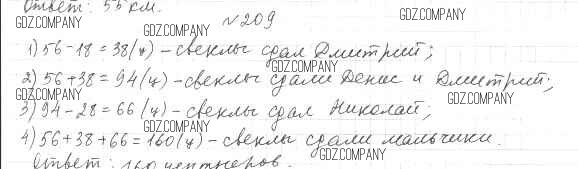 Ответ: 55 км.
GDZ.COMPANY GDZ.COMPANY GDZ.COMPANY
№209
1) 56-18=38(ц) - свеклы сдал Дмитрий;
GDZ.COMPANY
2) 56+38=94(ц) - свеклы сдали Денис и Дмитрий;
GDZ.COMPANY GDZ.COMPANY
3) 94-28=66(ц) - свеклы сдал Николай;
GDZ.COMPANY
4) 56+38+66=160(ц) - свеклы сдали мальчики.
GDZ.COMPANY
Ответ: 160 центнеров.